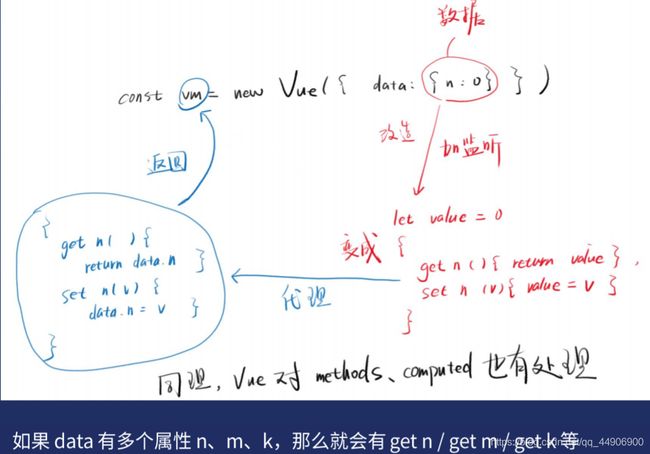 数据
const vm = new Vue({ data: {n:0} })
改造
加监听
返回
let value = 0
变成
{
get n(){ return value },
set n(v){ value = v }
}
代理
{
get n( ){
return data.n }
set n(v){
data.n = v }
}
同理, Vue 对 methods、computed 也有处理
如果 data 有多个属性 n、m、k，那么就会有 get n / get m / get k 等
qq_44906900